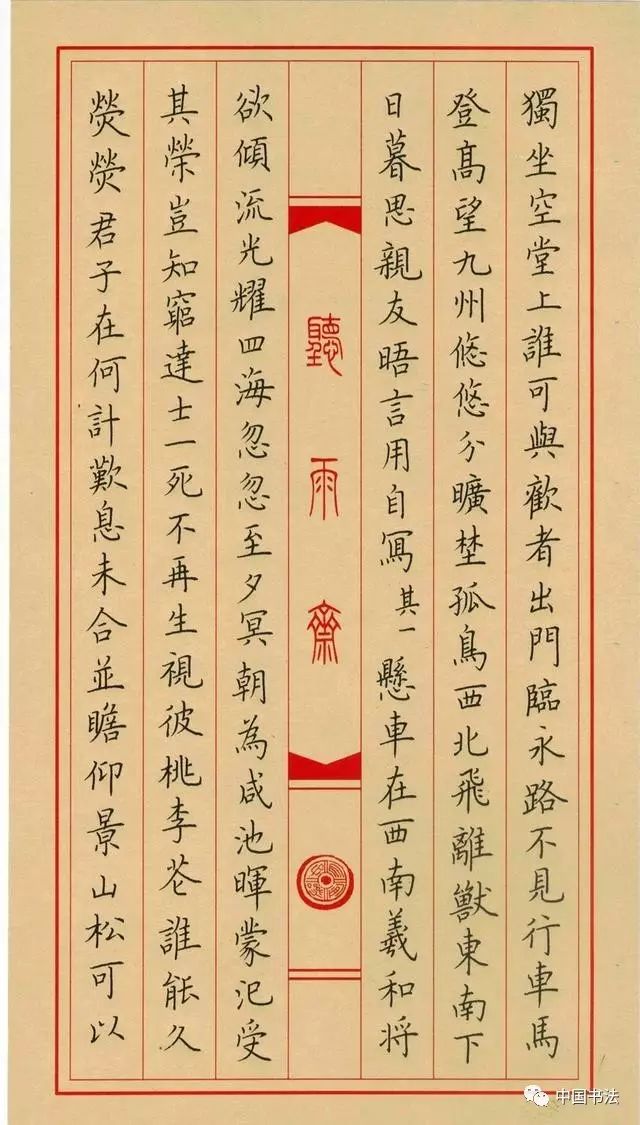 獨坐空堂上誰可與歡者出門臨永路不見行車馬
登髙望九州悠悠分曠埜孤鳥西北飛離獸東南下
日暮思親友晤言用自寫其一懸車在西南羲和将
聽雨齋
欲傾流光耀四海忽忽至夕冥朝為咸池暉蒙汜受
其榮豈知窮達士一死不再生視彼桃李花誰能久
熒熒君子在何計歎息未合並瞻仰景山松可以
中国书法